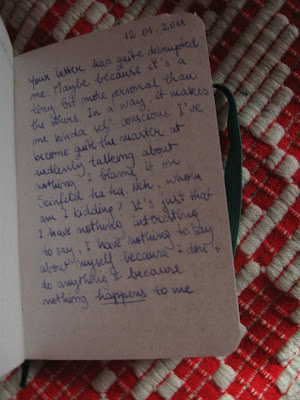 12.01.2011
Your letter has quite disrupted
me. Maybe because it's a
tiny bit more personal than
the others. In a way, it makes
me kinda self conscious. I've
become quite the master at
endlessly talking about
nothing. I blame it on
Seinfeld ha ha. Neh, whom
am I kidding? It's just that
I have nothing interesting
to say, I have nothing to say
about myself because I don't
do anything & because
nothing happens to me.